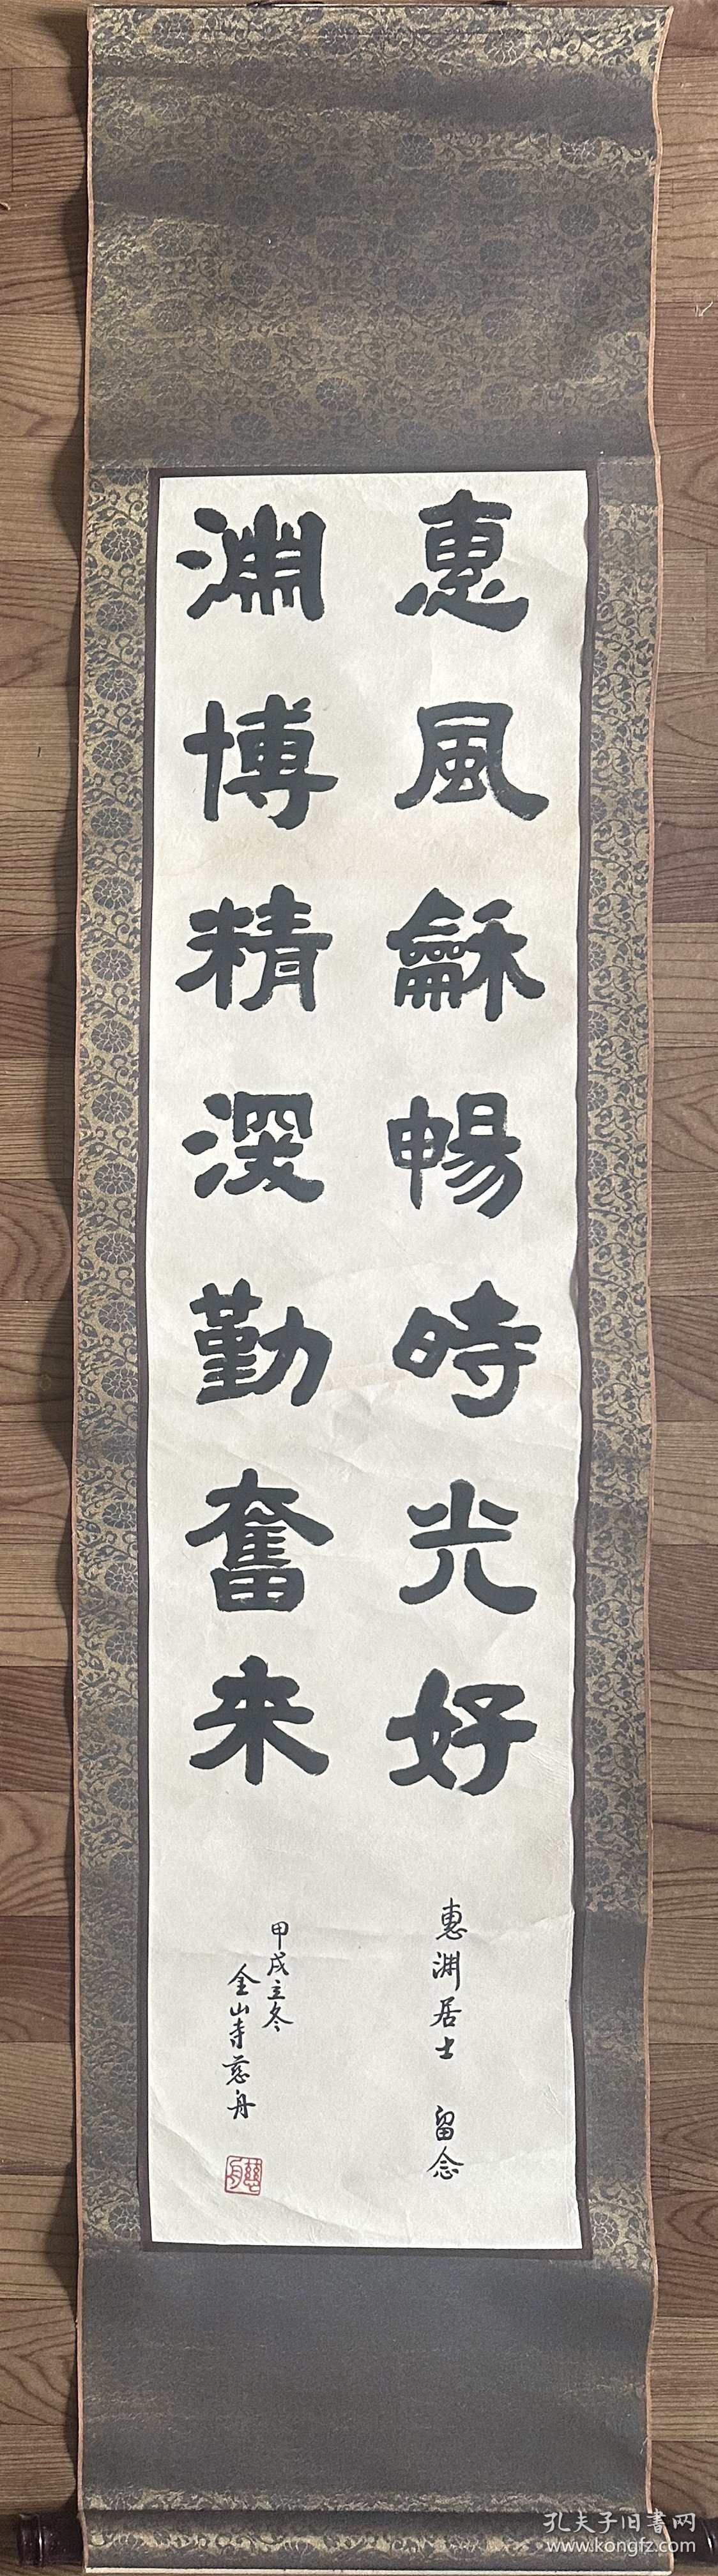 惠風龢暢時光好
淵博精深勤奮来
惠渊居士 留念
甲戌立冬
金山寺慈舟
慈舟
孔夫子旧書网
www.kongfz.com